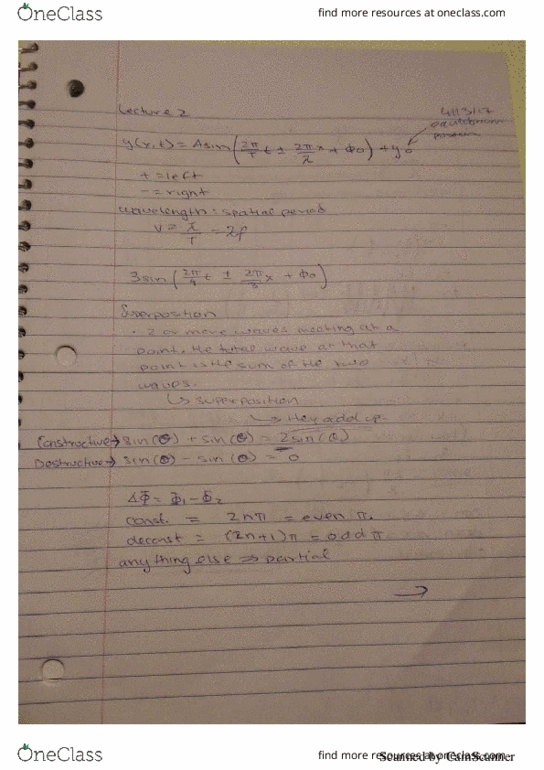 OneClass
find more resources at oneclass.com
Lecture 2
4/13/17
equilibrium
position
y(x,t) = A sin(2π/T t ± 2π/λ x + Φ0) + y0
+ = left
- = right
wavelength: spatial period
V = λ/T = λf
3 sin(2π/4 t ± 2π/3 x + Φ0)
Superposition
· 2 or more waves meeting at a
point, the total wave at that
point is the sum of the two
waves.
↳ superposition
↳ they add up
Constructive → sin(θ) + sin(θ) = 2sin(θ)
Destructive → sin(θ) - sin(θ) = 0
ΔΦ = Φ1 - Φ2
const. = 2nπ = even π.
deconst = (2n+1)π = odd π
anything else ⇒ partial
→
OneClass
find more resources at oneclass.com
Scanned by CamScanner